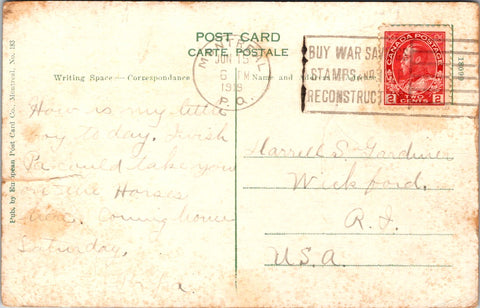 POST CARD
CARTE POSTALE
Writing Space—Correspondence
Name and Address
Pub. by European Post Card Co., Montreal, No. 183
MONTREAL
JUN 15
6 PM
1919
P.Q.
BUY WAR SAV
STAMPS
RECONSTRUCT
CANADA POSTAGE
2 TWO CENTS 2
How is my little
boy to day. I wish
Pa could take you
on the Horses
here. Coming home
Saturday.
Harrell S. Gardiner
Wickford.
R. I.
U.S.A.